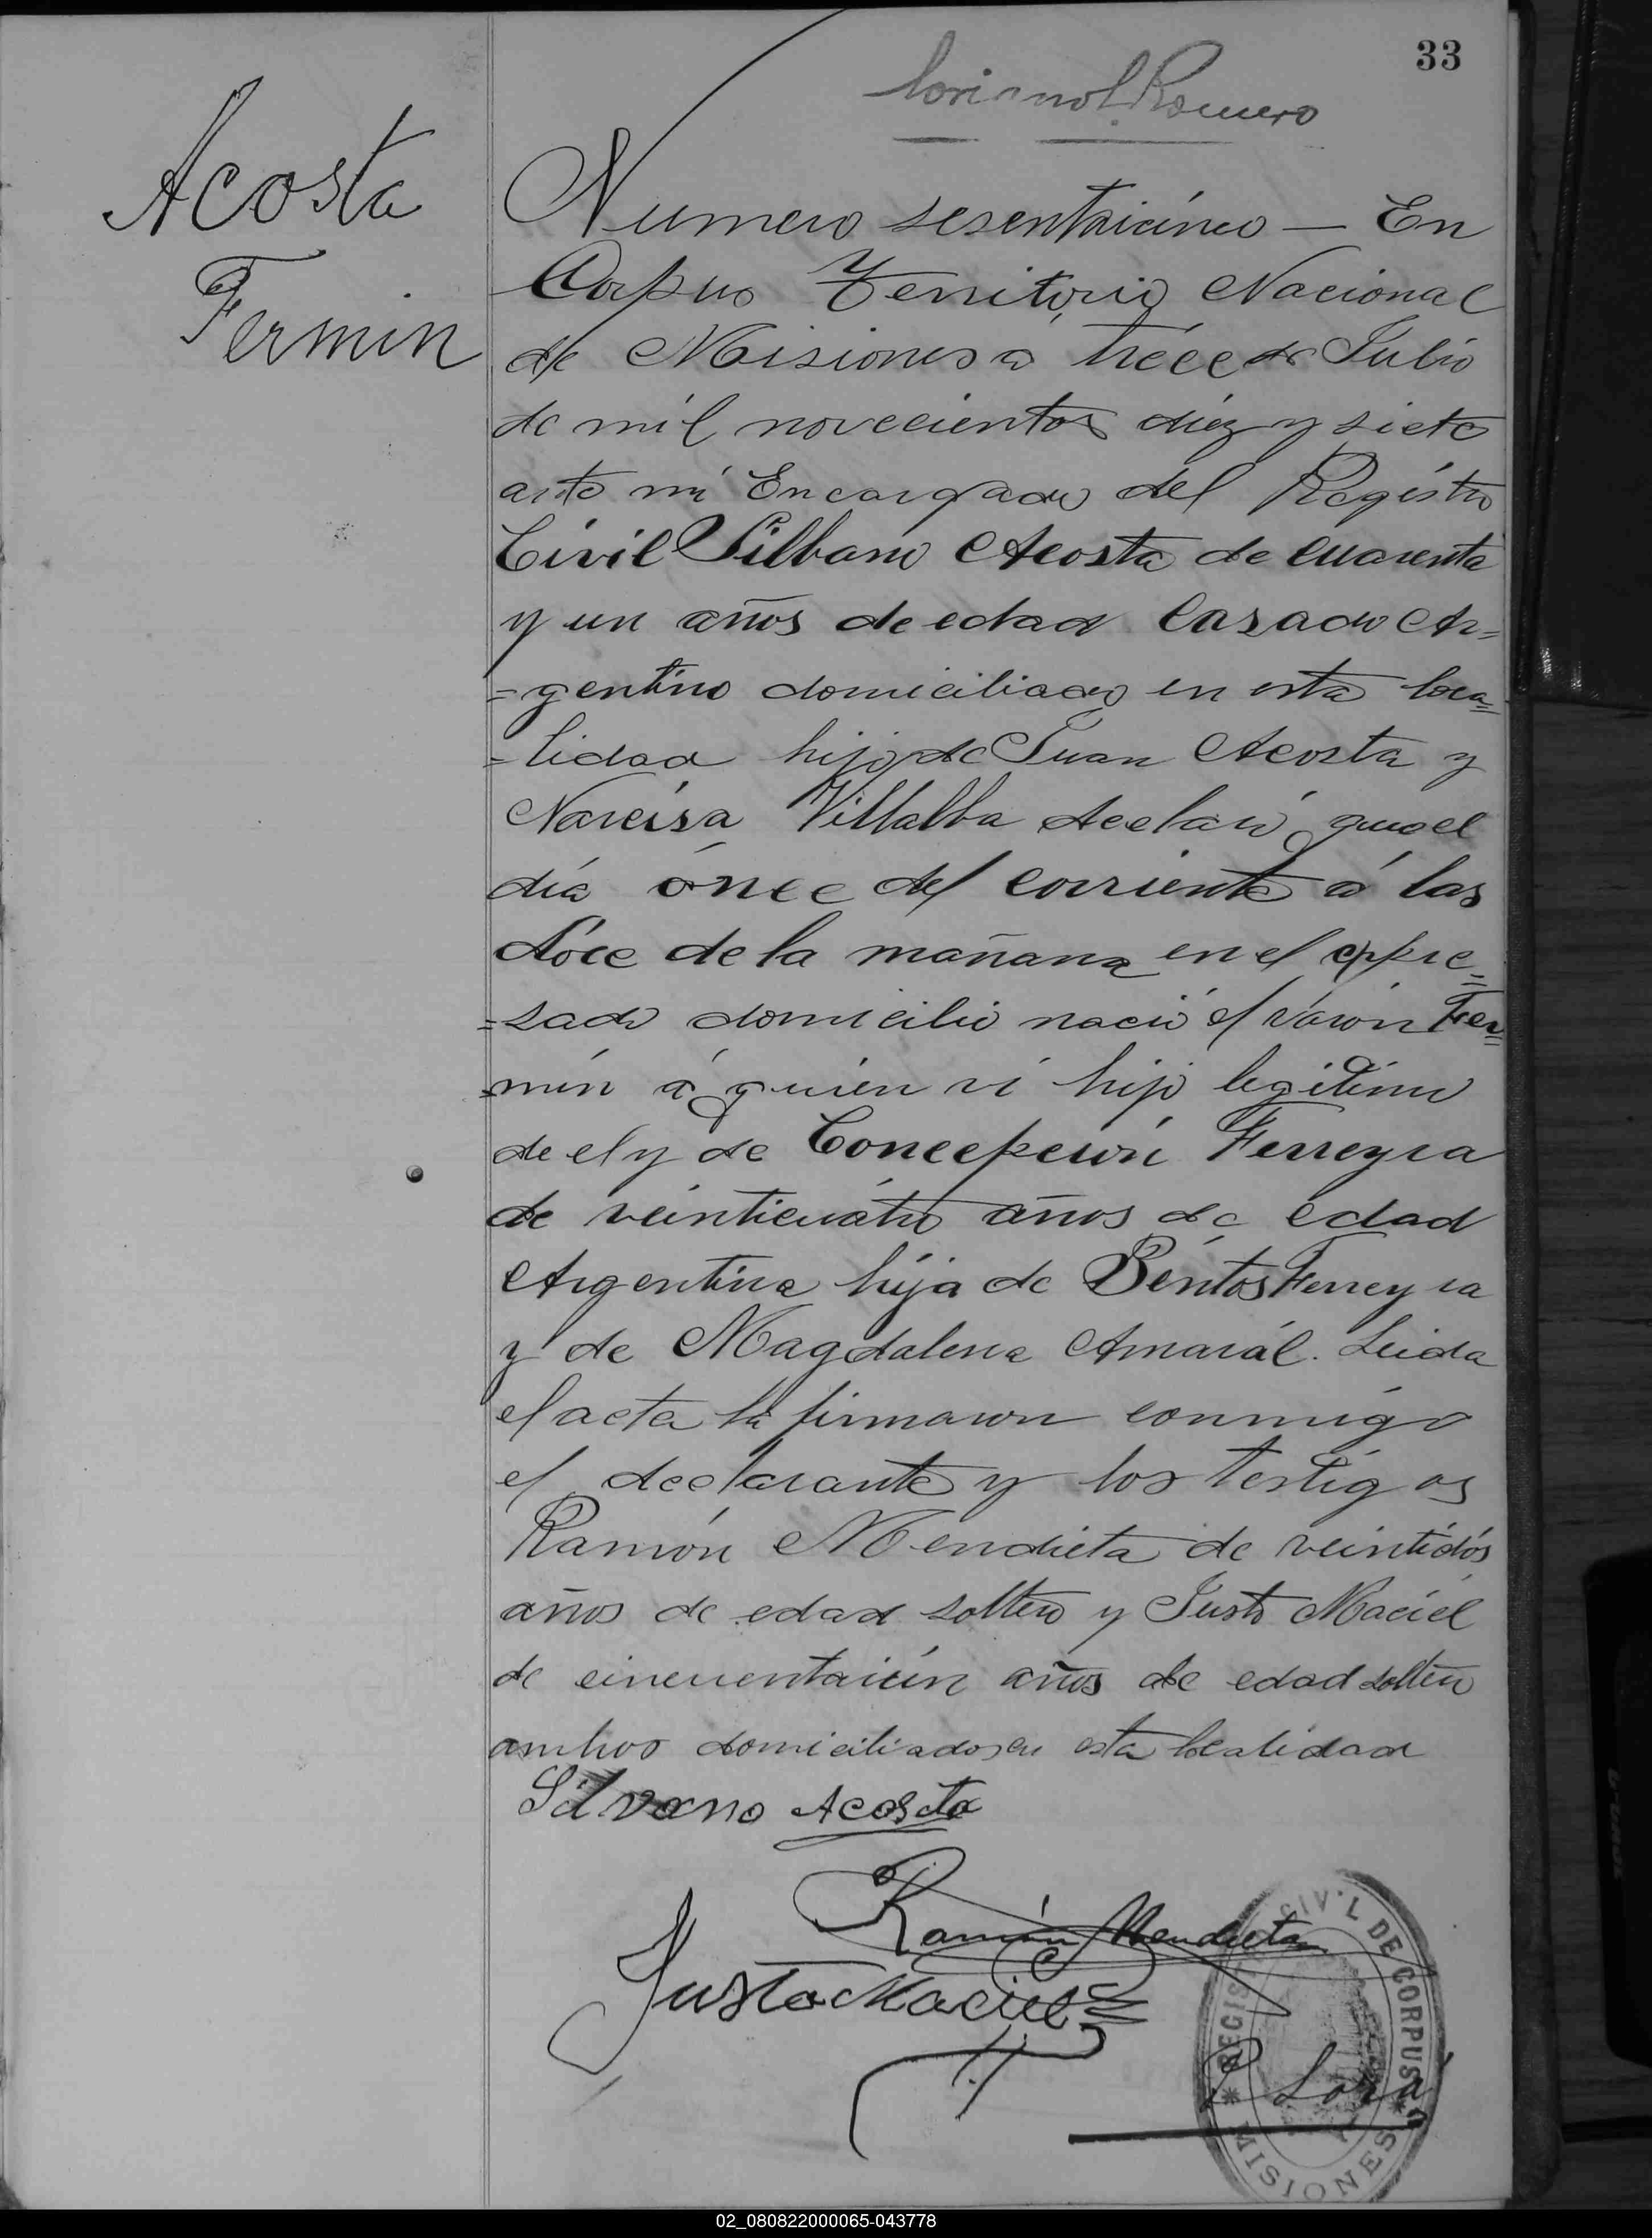 33
Romero
Acosta
Fermin
Numero sesentaicinco — En
Corpus Territorio Nacional
de Misiones a trece de Julio
de mil novecientos diez y siete
ante mi Encargado del Registro
Civil Silbano Acosta de cuarenta
y un años de edad casado Ar=
=gentino domiciliado en esta loca=
=lidad hijo de Juan Acosta y
Narcisa Villalba declaró que el
día ónce del corriente á las
dóce de la mañana en el expre=
=sado domicilio nació el varón Fer=
=mín á quien vi hijo legítimo
de el y de Concepción Ferreyra
de veinticuatro años de edad
Argentina hija de Béntos Ferreyra
y de Magdalena Amarál. Leida
el acta la firmaron conmigo
el declarante y los testigos
Ramón Mendieta de veintidós
años de edad soltero y Justo Maciel
de cincuentaiún años de edad soltero
ambos domiciliados en esta localidad
Silvano Acosta
Ramón Mendieta
Justo Maciel
REGISTRO CIVIL DE CORPUS
* MISIONES *
02_080822000065-043778